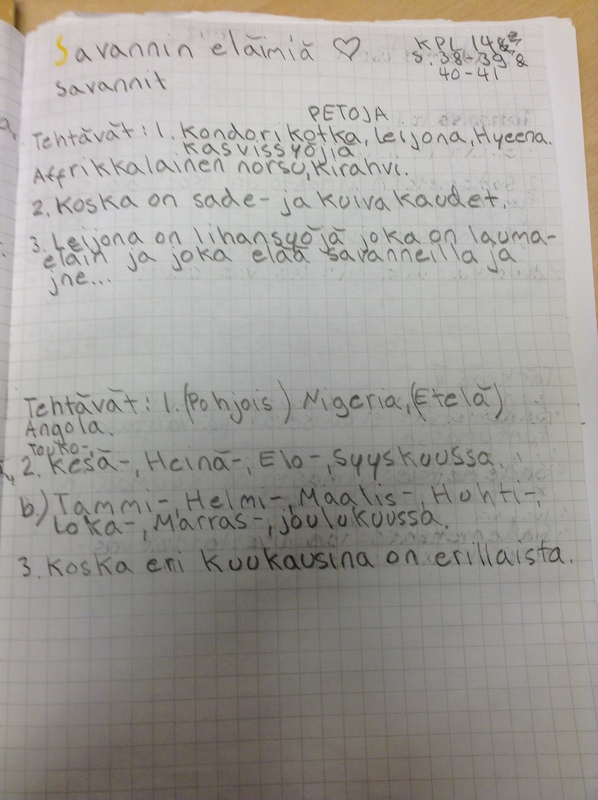 Savannin eläimiä ♡
savannit
KPL 14&
s. 38-39 &
40-41
PETOJA
Tehtävät: 1. Kondorikotka, Leijona, Hyeena.
kasvissyöjiä
Affrikkalainen norsu, Kirahvi.
2. Koska on sade- ja kuivakaudet.
3. Leijona on lihansyöjä joka on lauma-
eläin ja joka elää savanneilla ja
jne...
Tehtävät: 1. (Pohjois) Nigeria, (Etelä)
Angola.
Touko-,
2. Kesä-, Heinä-, Elo-, Syyskuussa.
b.) Tammi-, Helmi-, Maalis-, Huhti-,
Loka-, Marras-, joulukuussa.
3. Koska eri kuukausina on erillaista.